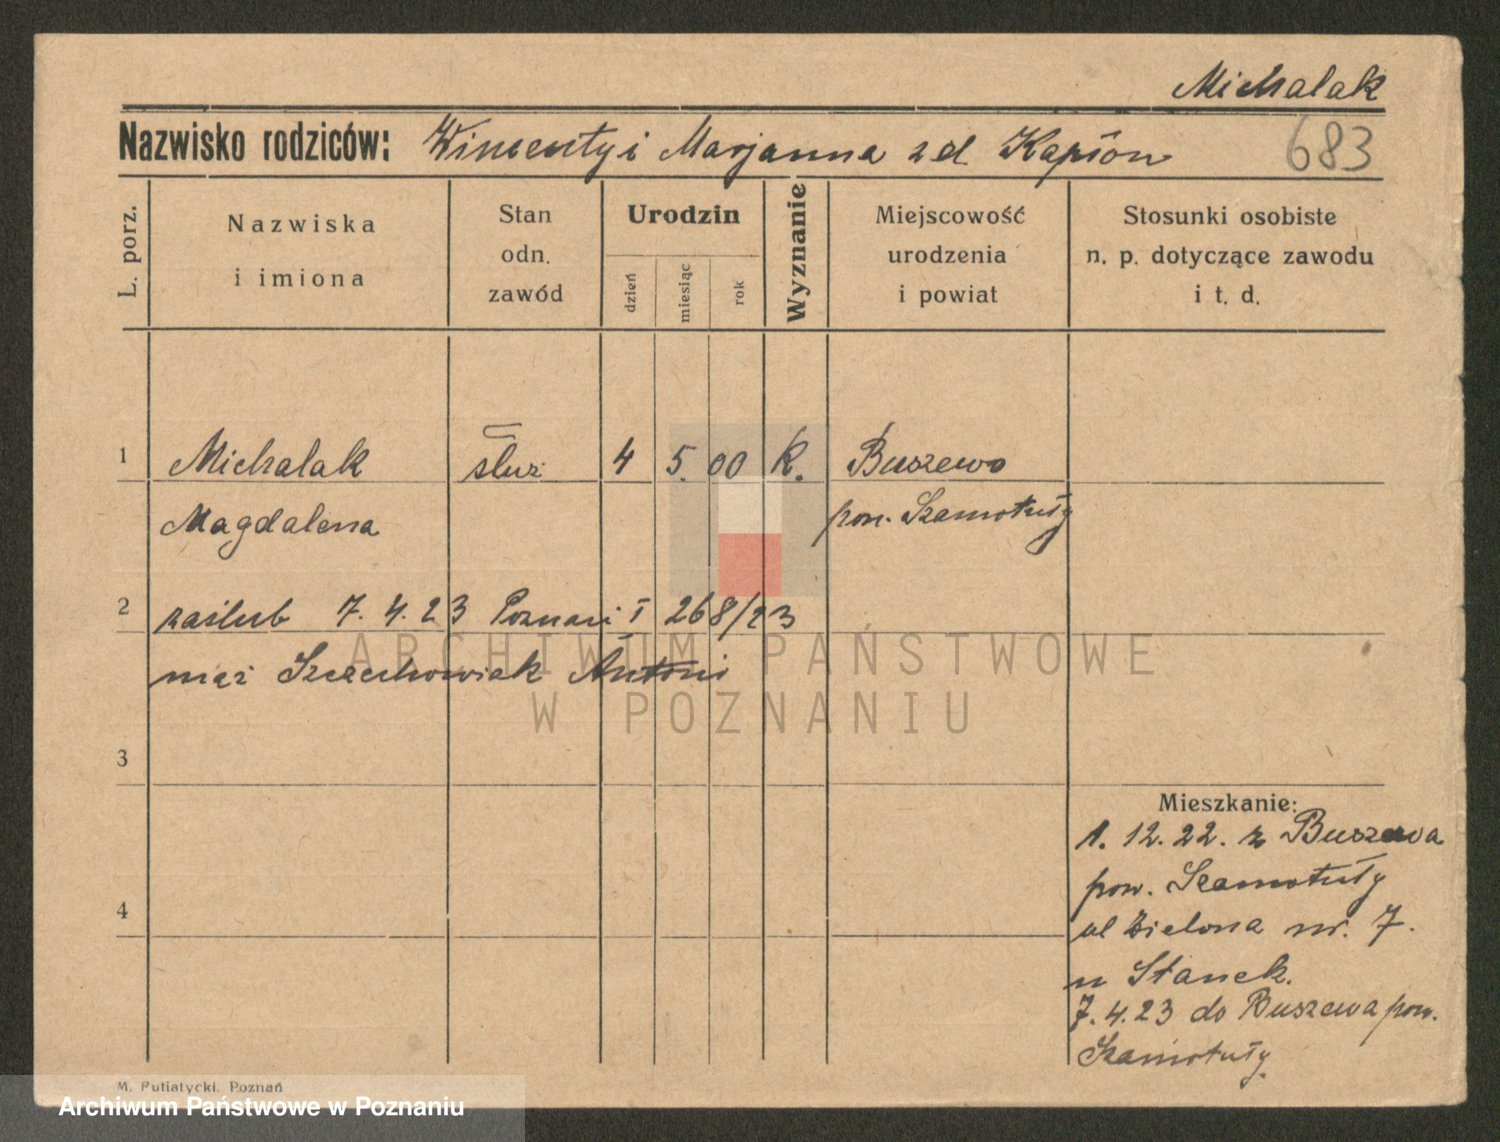 Michalak
Nazwisko rodziców: Wincenty i Marjanna z d Kapłon
683
L. porz.
Nazwiska
i imiona
Stan
odn.
zawód
Urodzin
dzień
miesiąc
rok
Wyznanie
Miejscowość
urodzenia
i powiat
Stosunki osobiste
n. p. dotyczące zawodu
i t. d.
1 Michalak służ 4 5. 00 K. Buszewo
Magdalena pow. Szamotuły
2 zaślub 7. 4. 23 Poznań I 268/23
mąż Szczechowiak Antoni
3
Mieszkanie:
1. 12. 22. z Buszewa
pow. Szamotuły
4
ul Zielona nr. 7.
u Stanek.
7. 4. 23 do Buszewa pow.
Szamotuły
M. Putiatycki, Poznań
ARCHIWUM PAŃSTWOWE
W POZNANIU
Archiwum Państwowe w Poznaniu